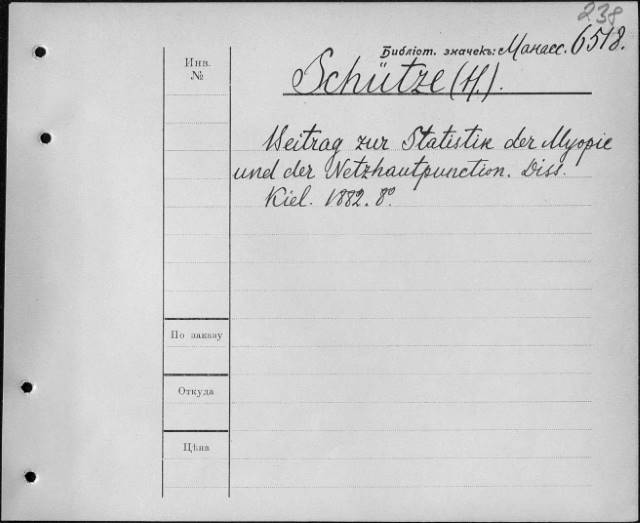 238
Библіот. значекъ: Манасс. 6518.
Инв.
№
Schütze (H.).
Beitrag zur Statistik der Myopie
und der Netzhautpunction. Diss.
Kiel. 1882. 8º
По заказу
Откуда
Цѣна